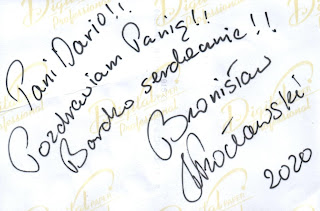 Pani Dario!!
Pozdrawiam Panią!!
Bardzo serdecznie!!
Bronisław
Wrocławski
2020